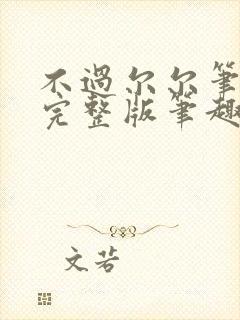 不过尔尔笔
完整版笔趣
文若